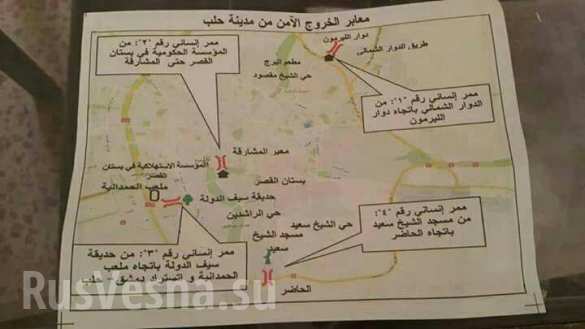 معابر الخروج الآمن من مدينة حلب
ممر إنساني رقم "٢": من
المؤسسة الحكومية في بستان
القصر حتى المشارقة
دوار الليرمون
طريق الدوار الشمالي
مطعم البرج
حي الشيخ مقصود
ممر إنساني رقم "١": من
الدوار الشمالي باتجاه دوار
الليرمون
معبر المشارقة
المؤسسة الاستهلاكية في بستان
القصر
ملعب الحمدانية
بستان القصر
حديقة سيف الدولة
حي الراشدين
حي الشيخ سعيد
مسجد الشيخ
سعيد
ممر إنساني رقم "٤":
من مسجد الشيخ سعيد
باتجاه الحاضر
ممر إنساني رقم "٣": من حديقة
سيف الدولة باتجاه ملعب
الحمدانية و اتستراد دمشق حلب
الحاضر
Rusvesna.su